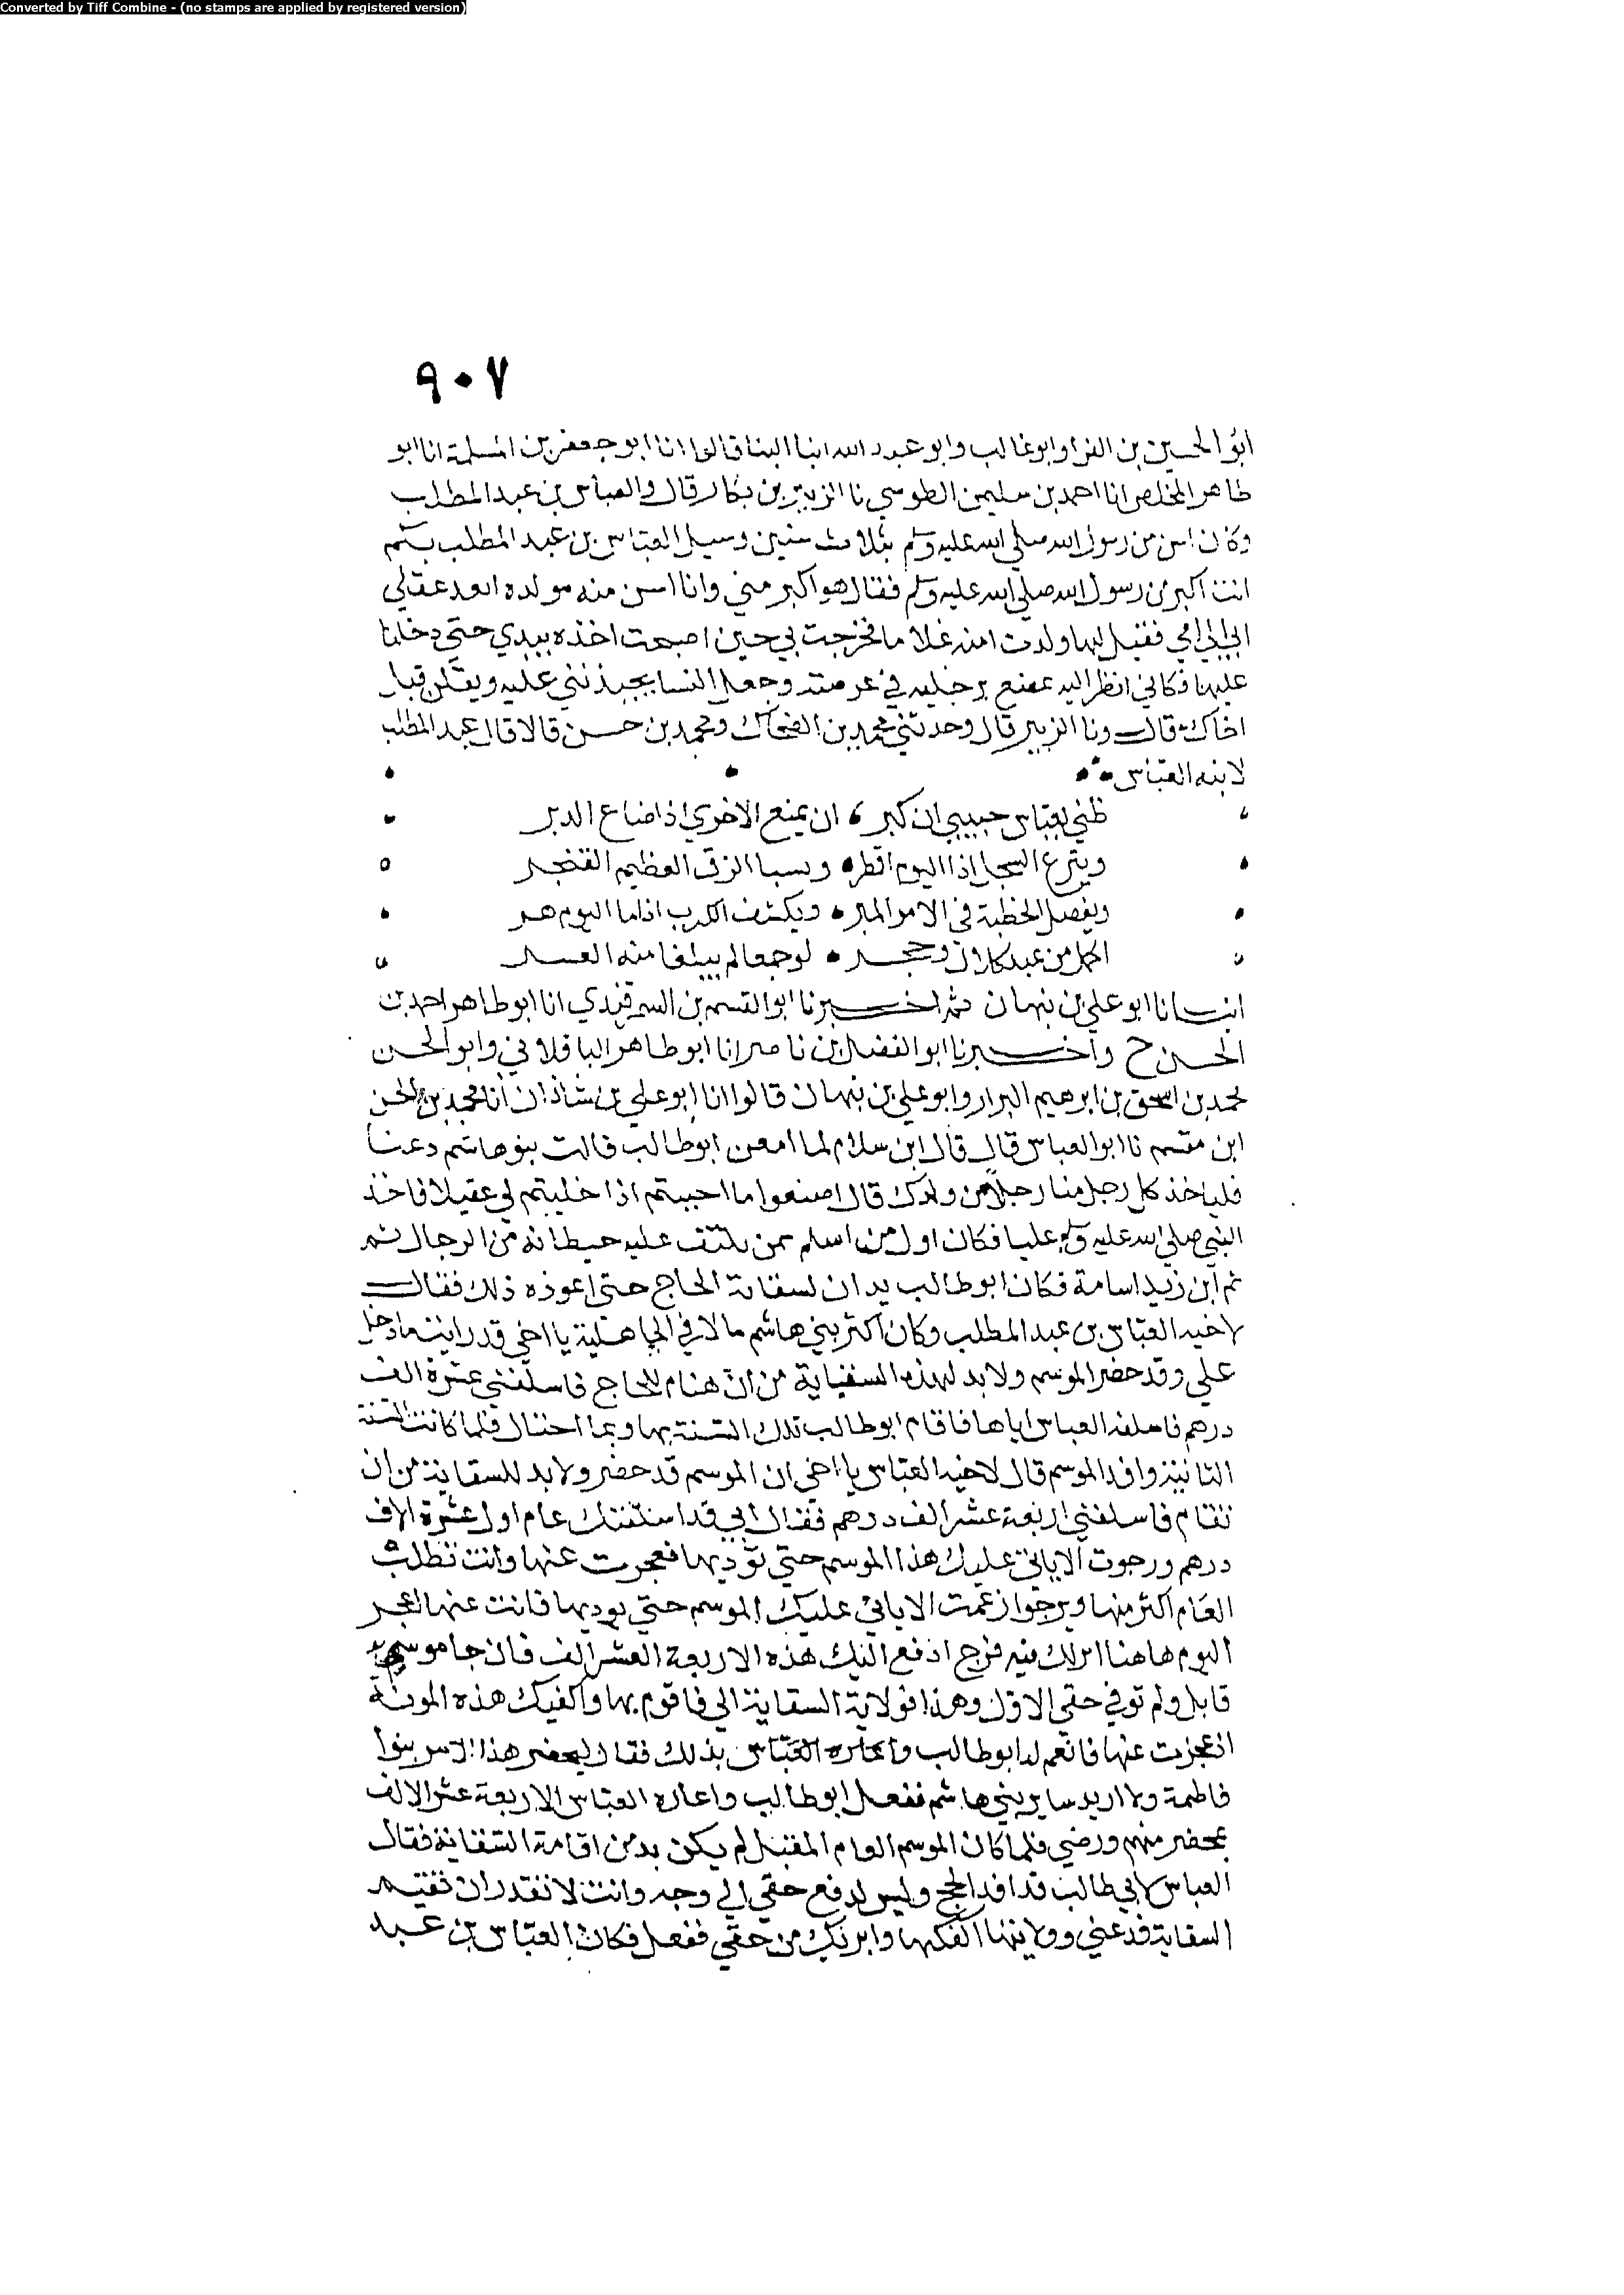 Converted by Tiff Combine - (no stamps are applied by registered version)
٩٠٧
ابو الحسين بن الفرا وابو غالب وابو عبد الله ابنا البنا قالوا انا ابو جعفر بن المسلمة انا ابو
طاهر المخلص انا احمد بن سليمن الطوسي نا الزبير بن بكار قال والعباس بن عبد المطلب
وكان اسن من رسول الله صلي الله عليه وسلم بثلاث سنين وسيل العباس بن عبد المطلب
انت اكبر من رسول الله صلي الله عليه وسلم فقال هو اكبر مني وانا اسن منه مولده ابعد عقلي
امي فقيل لها ولدت امنة غلاما فخرجت بي حين اصبحت اخذه بيدي حتي دخلنا
عليها فكاني انظر اليه يمصع برجليه في عرصته وجعل النسا يجبذنني عليه ويقلن قبل
اخاك قال ونا الزبير قال وحدثني محمد بن الضحاك ومحمد بن حسن قالا قال عبد المطلب
لابنه العباس
ظني بعباس حبيبي ان كبر ان يمنع الاخري اذا ضاع الدبر
وينزع السجل اذا اليوم اقطر ويسبا الزق العظيم القفجر
ويفصل الخطبة في الامر المبر ويكشف الكرب اذا ما اليوم هر
اكمل من عبد كلال وحجر لو جمعا لم يبلغا منه العسر
انبانا ابو علي بن نبهان ثم اخبرنا ابو القسم بن السمرقندي انا ابو طاهر احمد بن
الحسن ح واخبرنا ابو الفضل بن ناصر انا ابو طاهر الباقلاني وابو الحسن
محمد بن اسحق بن ابرهيم البزار وابو علي بن نبهان قالوا انا ابو علي بن شاذان انا محمد بن الحسن
ابن مقسم نا ابو العباس قال قال ابن سلام لما امعن ابو طالب قالت بنو هاشم دعنا
فلياخذ كل رجل منا رجلا من ولدك قال اصنعوا ما احببتم اذا خليتم لي عقيلا فاخذ
النبي صلي الله عليه وسلم عليا فكان اول من اسلم ممن يلتف عليه حيطانه من الرجال ثم
ثم ابن زيد اسامة فكان ابو طالب يدان لسقاية الحاج حتي اعوزه ذلك فقال
لاخيه العباس بن عبد المطلب وكان اكثر بني هاشم مالا في الجاهلية يا اخي قد رايت ما دخل
علي وقد حضر الموسم ولا بد لهذه السقاية من ان تقام للحاج فاسلفني عشرة الف
درهم فاسلفه العباس اياها فاقام ابو طالب تلك السنة بها وبما احتال فلما كانت السنة
الثانية وافد الموسم قال لاخيه العباس يا اخي ان الموسم قد حضر ولا بد للسقاية من ان
تقام فاسلفني اربعة عشر الف درهم فقال اني قد اسلفتك عام اول عشرة الاف
درهم ورجوت الا ياتي عليك هذا الموسم حتي توديها فعجزت عنها وانت تطلب
العام اكثر منها وترجو زعمت الا ياتي عليك الموسم حتي توديها فانت عنها اعجز
اليوم هاهنا امر لك فيه فرج ادفع اليك هذه الاربعة العشر الف فان جا موسم
قابل ولم توفي حقي الاول وهذا فولاية السقاية الي فاقوم بها واكفيك هذه المونة
اذ عجزت عنها فانعم له ابو طالب واعاره العباس بذلك فقال ليحضر هذا الامر بنوا
فاطمة ولا اريد ساير بني هاشم ففعل ابو طالب واعاره العباس الاربعة عشر الالف
بمحضر منهم ورضي فلما كان الموسم العام المقبل لم يكن بد من اقامة السقاية فقال
العباس لابي طالب قد افد الحج وليس لدفع حقي الي وجه وانت لا تقدر ان تقيم
السقاية فدعني وولايتها اكفكها وابرئك من حقي ففعل فكان العباس بن عبد